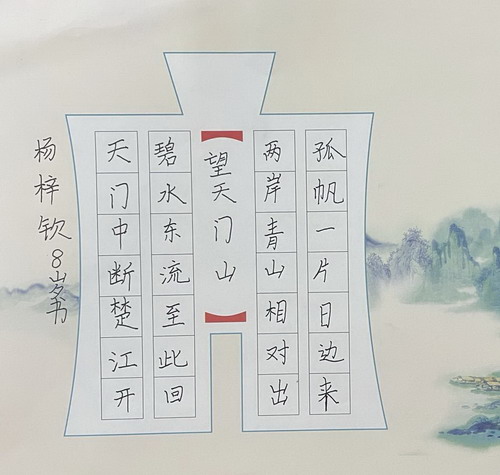 望天门山
天门中断楚江开
碧水东流至此回
两岸青山相对出
孤帆一片日边来
杨梓钦8岁书